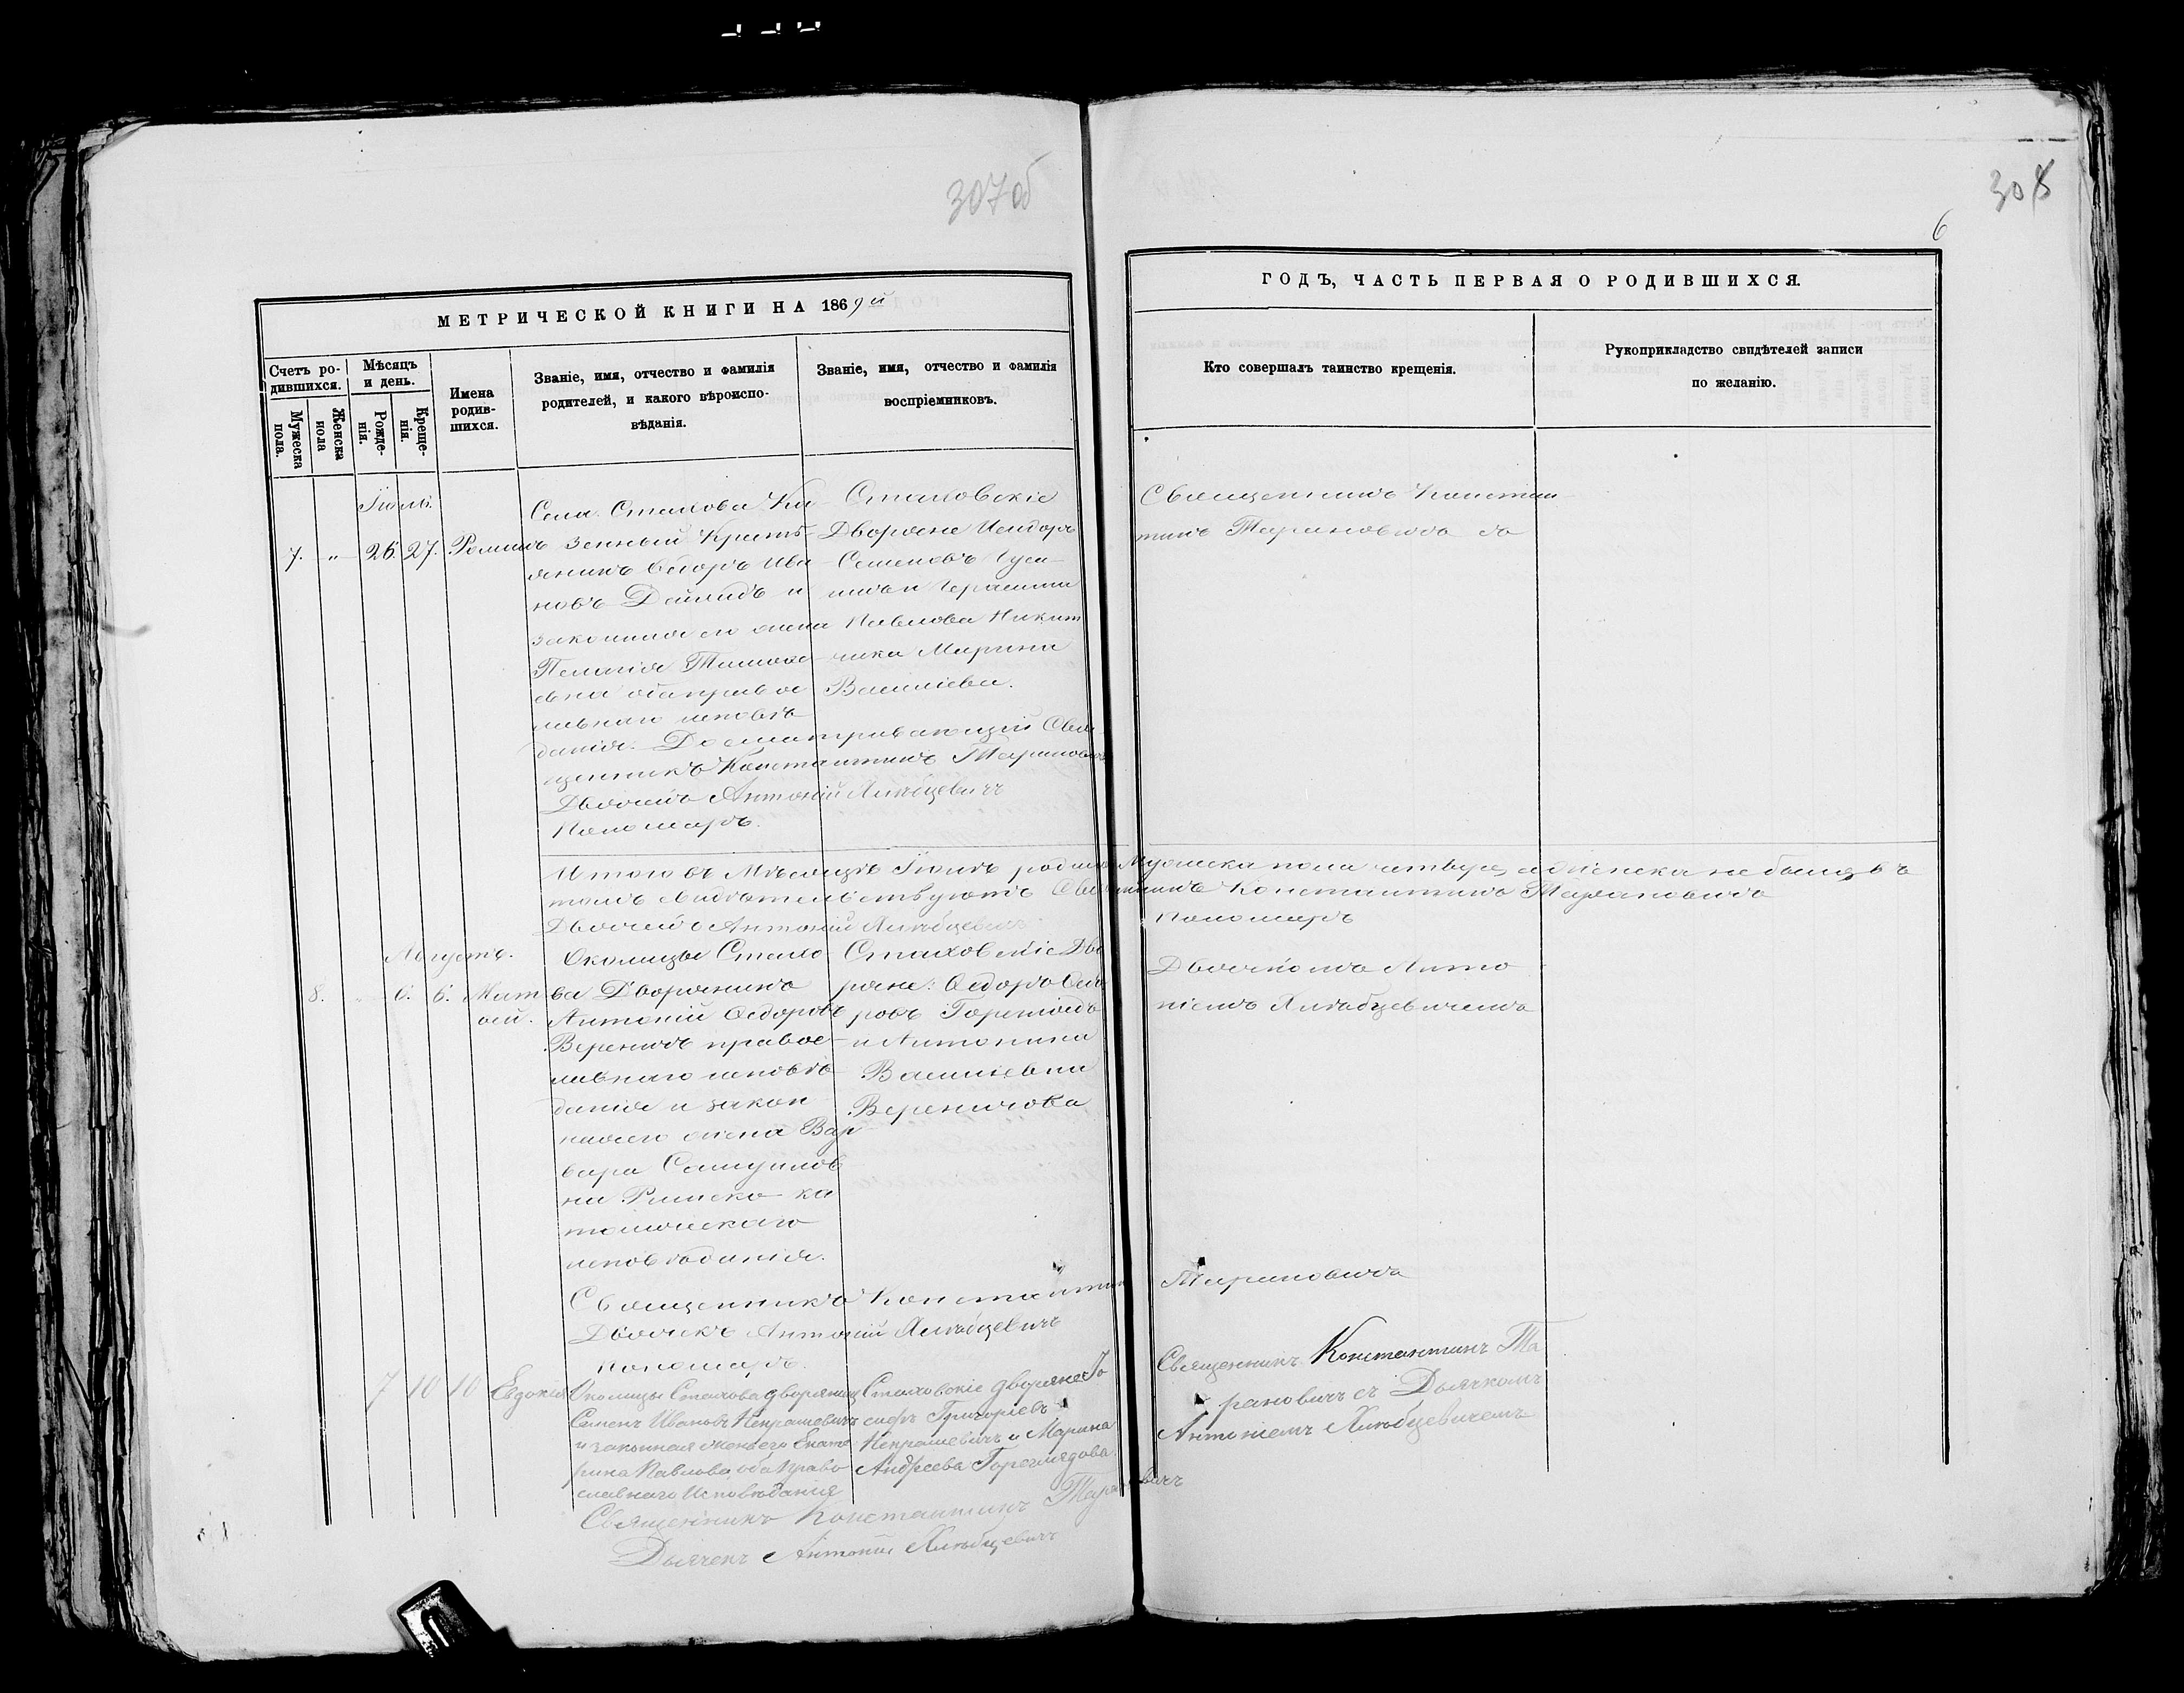 307об
308
6
МЕТРИЧЕСКОЙ КНИГИ НА 1869й
ГОДЪ, ЧАСТЬ ПЕРВАЯ О РОДИВШИХСЯ.
Счетъ ро-
дившихся.
Мужеска
пола.
Женска
пола
Мѣсяцъ
и день.
Рожде-
нія.
Креще-
нія.
Имена
родив-
шихся.
Званіе, имя, отчество и фамилія
родителей, и какого вѣроиспо-
вѣданія.
Званіе, имя, отчество и фамилія
воспріемниковъ.
Кто совершалъ таинство крещенія.
Рукоприкладство свидѣтелей записи
по желанію.
Іюль.
7. " 26. 27. Романъ
Села Стахова Ка-
зенный Кресть-
янинъ Ѳеодоръ Ива
новъ и
законная его жена
Пелагія Тимоѳе
евна оба правос
лавнаго исповѣ
данія.
Стаховскіе
Дворяне Исидоръ
Семеновъ
Павлова
Марина
Василіева.
Священникъ Констан
тинъ Тарановичъ съ
Досматривающій Свя
щенникъ Константинъ Тарановичъ
Дьячекъ Антоній Хлѣбцевичъ
Пономарь.
Итого въ Мѣсяцѣ Іюлѣ родилось Мужеска пола а женска не было, въ
томъ свидѣтельствуютъ Священникъ Константинъ Тарановичъ
Дьячекъ Антоній Хлѣбцевичъ
Пономарь
Августъ.
8. " 6. 6. Мат
ѳей.
Околицы Стахо
ва Дворянинъ
Антоній Ѳедоровъ
Вереничъ правос
лавнаго исповѣ
данія и закон
ная его жена Вар
вара Самуилов
на Римско-ка
толическаго
исповѣданія.
Стаховскіе Дво
ряне: Ѳедоръ Ѳедо
ровъ Гореглядъ
и Антонина
Василіевна
Вереничова
Дьячкомъ Анто
ніемъ Хлѣбцевичемъ
Священникъ Константинъ
Тарановичъ
Дьячекъ Антоній Хлѣбцевичъ
Пономарь.
7 10 10 Евдокія
Околицы Стахова дворянинъ
Семенъ Ивановъ Некрашевичъ
и законная жена его Екате
рина Павлова оба Право
славнаго Исповѣданія
Стаховскіе дворяне Іо
сифъ Григоріевъ
Некрашевичъ и Марина
Андреева Гореглядова
Священникъ Константинъ Та
рановичъ съ Дьячкомъ
Антоніемъ Хлѣбцевичемъ
Священникъ Константинъ Тарановичъ
Дьячекъ Антоній Хлѣбцевичъ